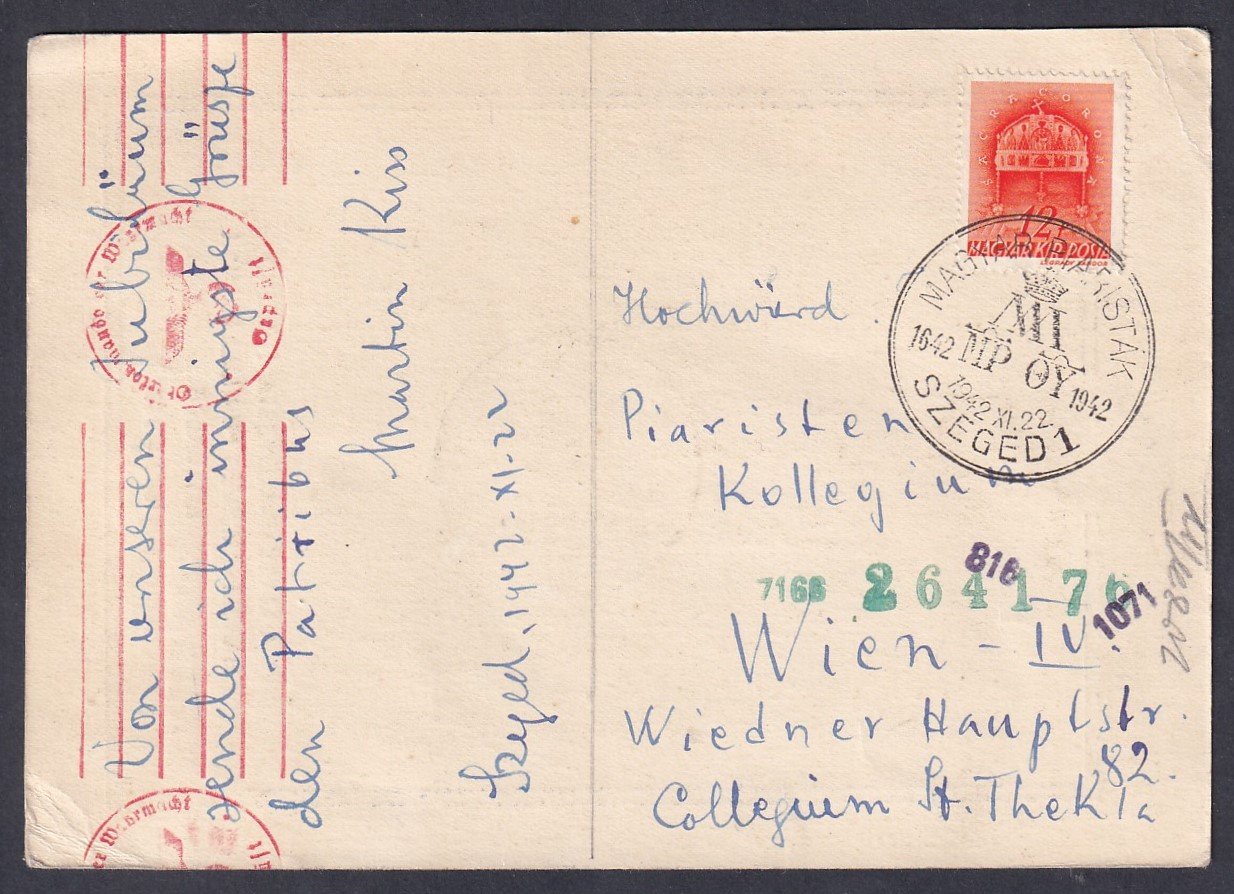 Von unseren Jubiläum
sende ich innigste Grüsze
den Patribus
Martin Kiss
Szeged, 1942-XI-22
SACRA CORONA
12f
MAGYAR KIR. POSTA
LEGRÁDY SÁNDOR
MAGYAR PIARISTÁK
1642 MP ΘΥ 1942
1942 XI. 22.
SZEGED 1
Hochwürd.
Piaristen
Kollegium
7166 264176
816
1071
Wien - IV.
Wiedner Hauptstr.
82.
Collegium St. Thekla
Oberkommando der Wehrmacht
er Wehrmacht